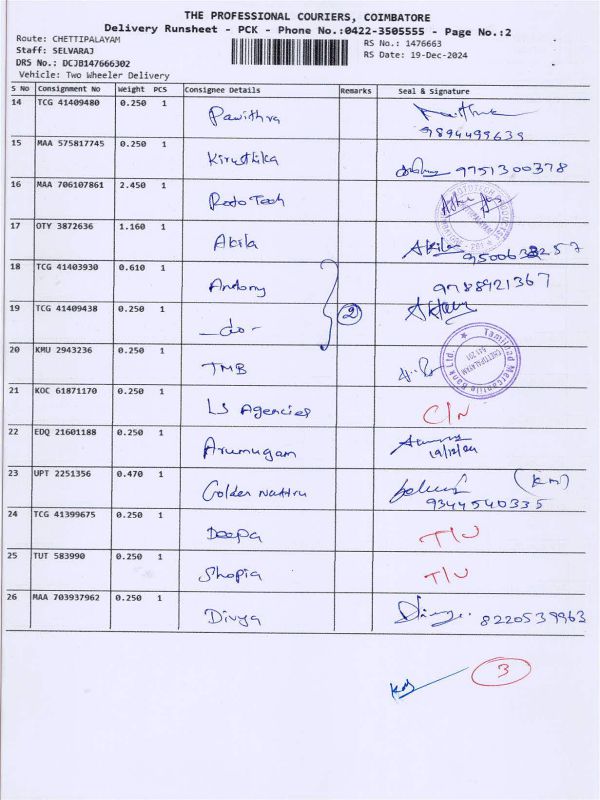 THE PROFESSIONAL COURIERS, COIMBATORE
Delivery Runsheet - PCK - Phone No.:0422-3505555 - Page No.:2
Route: CHETTIPALAYAM
RS No.: 1476663
Staff: SELVARAJ
RS Date: 19-Dec-2024
DRS No.: DCJB147666302
Vehicle: Two Wheeler Delivery
S No Consignment No Weight PCS Consignee Details Remarks Seal & Signature
14 TCG 41409480 0.250 1 Pavithra
9894499639
15 MAA 575817745 0.250 1 Kiruthika 9751300378
16 MAA 706107861 2.450 1 Roto Tech
17 OTY 3872636 1.160 1 Akila Akila
18 TCG 41403930 0.610 1 Antony 9788921367
19 TCG 41409438 0.250 1 -do- 2
20 KMU 2943236 0.250 1 TMB Tamilnad Mercantile Bank Ltd. CHETTIPALAYAM
21 KOC 61871170 0.250 1 LS Agencies C/N
22 EDQ 21601188 0.250 1 Arumugam
19/12/24
23 UPT 2251356 0.470 1 Golden
9344540335
24 TCG 41399675 0.250 1 Deepa T/U
25 TUT 583990 0.250 1 Shopia T/U
26 MAA 703937962 0.250 1 Divya 8220539963
3